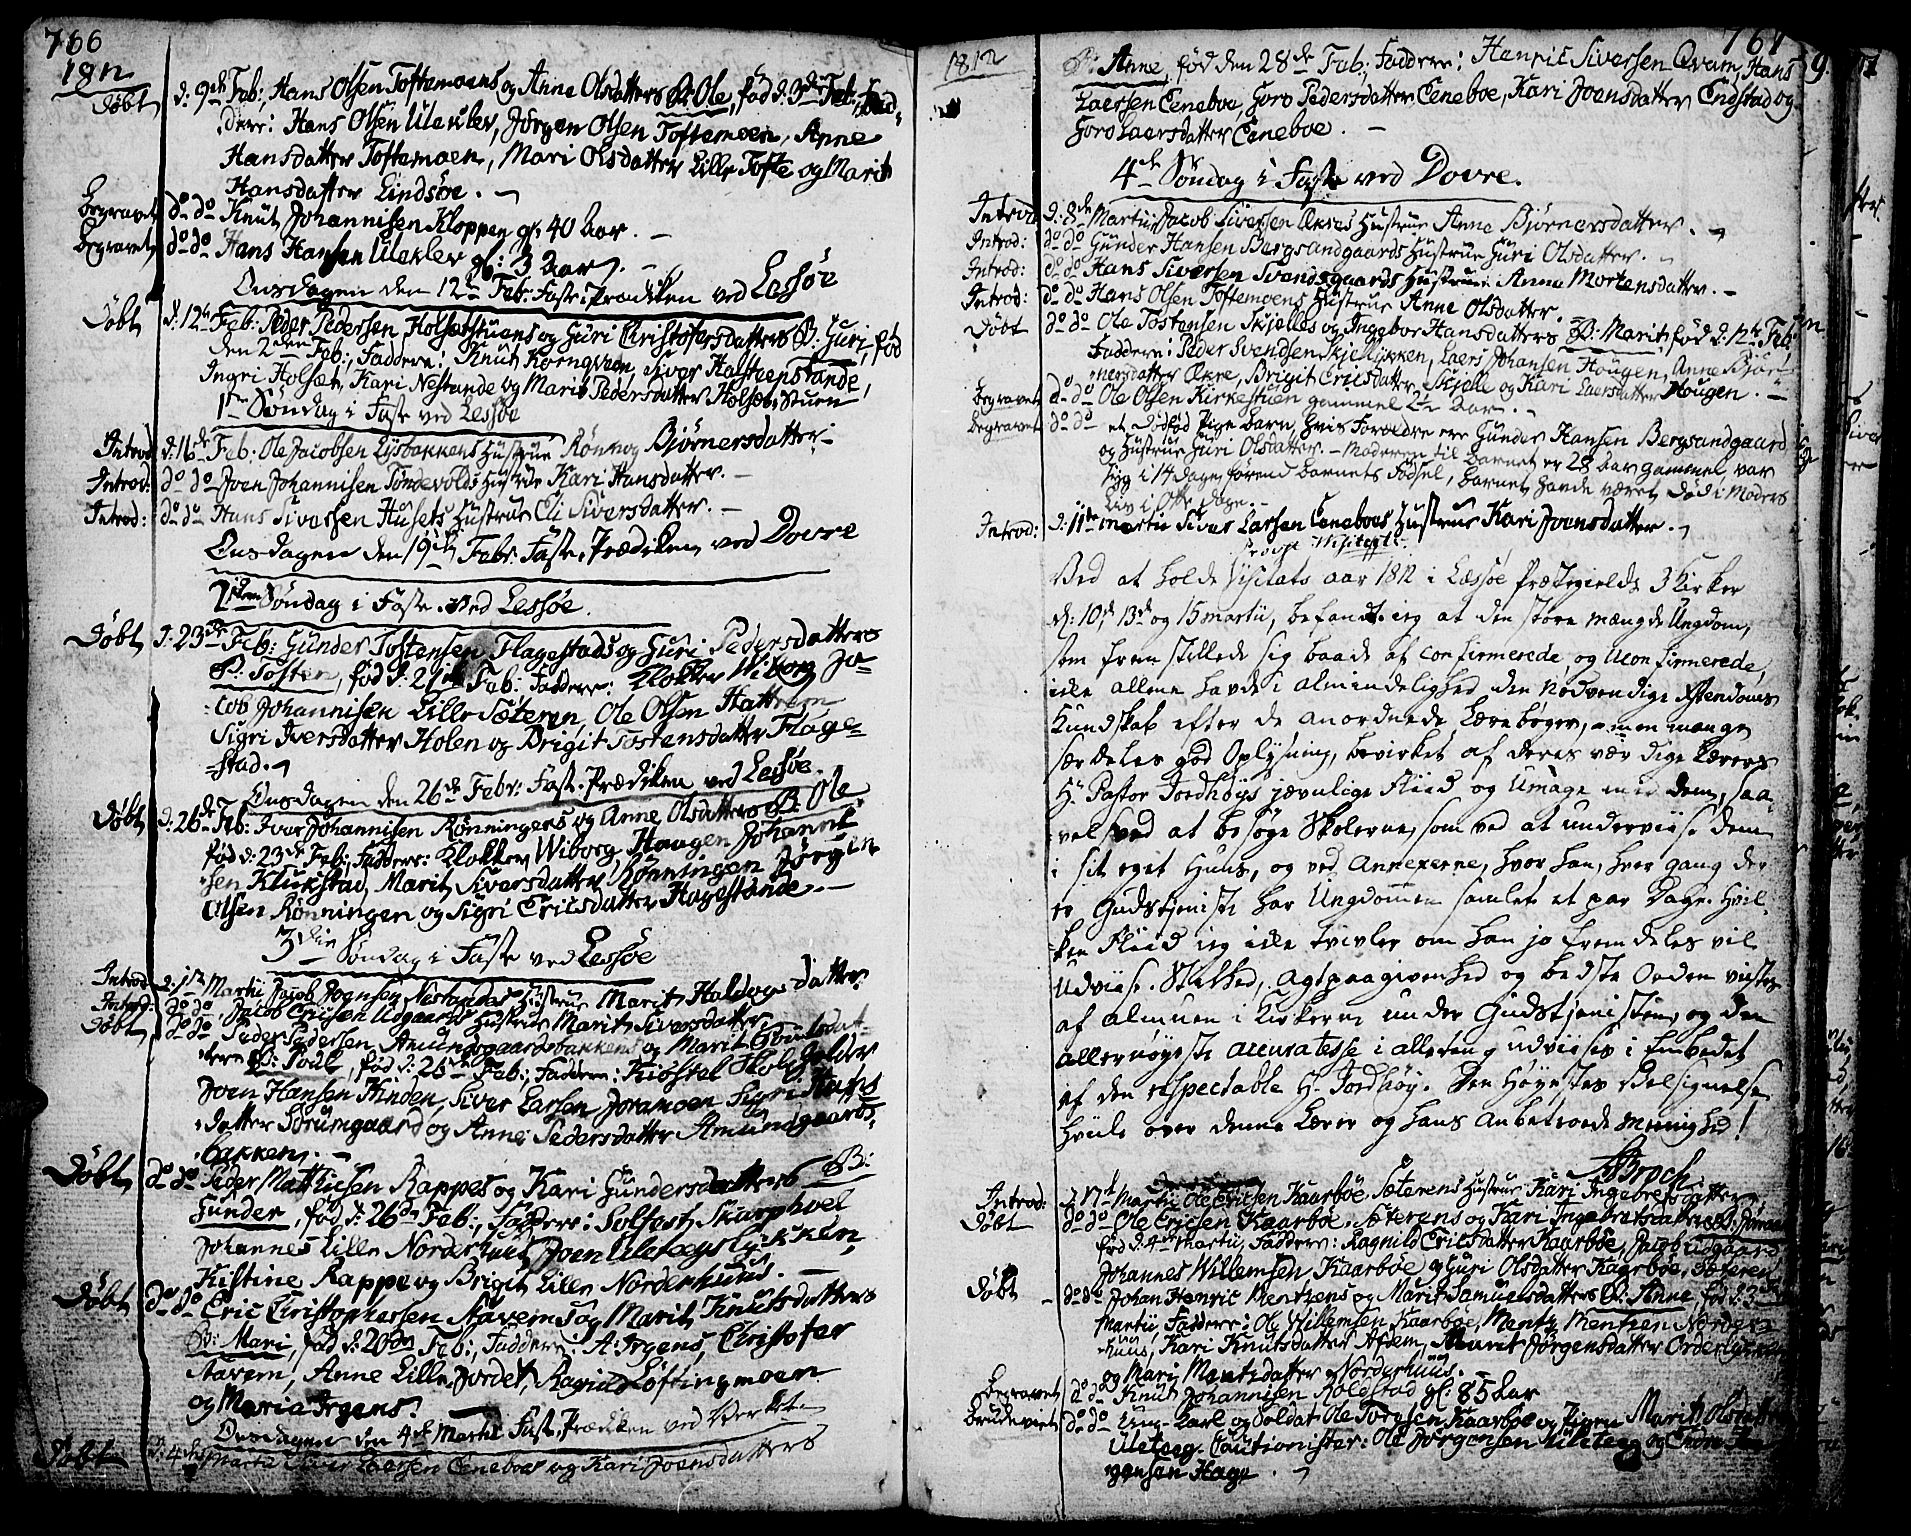 766
1812
Døbt d: 9de Feb:, Hans Olsen Toftemoens og Anne Olsdatters B: Ole, fød d: 3de Feb:, Fad-
dere: Hans Olsen Uleklev, Jørgen Olsen Toftemoen, Anne
Hansdatter Toftemoen, Mari Olsdatter Lille Tofte og Marit
Hansdatter Lindsøe.
Begravet do do Knut Johannisen Kloppen gl: 40 Aar.
Begravet do do Hans Hansen Uleklev gl: 3 Aar.
Onsdagen den 12te Feb: Faste Prædiken ved Lessøe
Døbt d: 12te Feb: Peder Pedersen Holsetstuens og Guri Christofersdatters B: Guri, fød
den 2den Feb:, Faddere: Knut Kornqven, Siver Halstenstande,
Ingri Holset, Kari Nestande og Marit Pedersdatter Holset Stuen
1te Søndag i Faste ved Lessøe
Introd: d: 16de Feb: Ole Jacobsen Lysbakkens Hustrue Rønnog Bjørnersdatter.
Introd: do do Joen Johannisen Tondevolds Hustrue Kari Hansdatter.
Introd: do do Hans Siversen Husets Hustrue Eli Siversdatter.
Onsdagen den 19de Febr: Faste Prædiken ved Dovre
2den Søndag i Faste ved Lessøe.
Døbt d: 23de Feb: Gunder Tostensen Flagestads og Guri Pedersdatters
B: Tosten, fød d: 21de Feb: Faddere: Klokker Wiborg, Ja-
cob Johannisen Lille Sæteren, Ole Olsen Hattrem
Sigri Iversdatter Holen og Brigit Tostensdatter Flage-
stad.
Onsdagen den 26de Febr: Faste Prædiken ved Lessøe.
Døbt d: 26de Feb: Ivar Johannisen Rønningens og Anne Olsdatters B: Ole
fød d: 23de Feb:, Faddere: Klokker Wiborg, Haagen Johanni-
sen Klukstad, Marit Siversdatter Rønningen Jørgen
Olsen Rønningen og Sigri Ericsdatter Hagestande.
3die Søndag i Faste ved Lessøe
Introd: d: 1te Martii Jacob Joensen Nestandes Hustrue Marit Haldogsdatter
Introd: do do Jacob Ericsen Udgaards Hustrue Marit Siversdatter
Døbt do do Peder Pedersen Amundsgaardsbakkens og Marit
B: Poul, fød d: 25de Feb:, Faddere: Skoleholder
Joen Hansen Kinden, Siver Larsen Joramoen Sigri Hans
datter Sørumgaard og Anne Pedersdatter Amundgaards-
bakken.
Døbt do do Peder Mathiesen Rappes og Kari Gundersdatters B:
Gunder, fød d: 26de Feb:, Faddere: Solfest Skarphoel
Johannes Lille Norderhuus, Joen
Kistine Rappe og Brigit Lille Norderhuus.
Døbt do do Eric Christophersen Aavems og Marit Knutsdatters
B: Mari, fød d: 20de Feb:, Faddere: A: Irgens, Christofer
Aavem, Anne Lille Jordet, Ragnild Løftingmoen
og Maria Irgens.
Onsdagen den 4de Martii Faste Prædiken ved Verket
Døbt d: 4de Martii Siver Laersen Eneboes og Kari Joensdatters
1812
767
B: Anne, fød den 28de Feb:, Faddere: Henric Siversen Qvam, Hans
Laersen Eneboe, Goro Pedersdatter Eneboe, Kari Joensdatter Endstad og
Goro Laersdatter Eneboe.
4de Søndag i Faste ved Dovre.
Introd: d: 8de Martii Jacob Siversen Økres Hustrue Anne Bjørnersdatter.
Introd: do do Gunder Hansen Bergsandgaards Hustrue Guri Olsdatter.
Introd: do do Hans Siversen Svendsgaards Hustrue Anne Mortensdatter.
Introd: do do Hans Olsen Toftemoens Hustrue Anne Olsdatter.
Døbt do do Ole Tostensen Skjelles og Ingebor Hansdatters B: Marit, fød d: 12te Feb:
Faddere: Peder Svendsen Skjellikken, Laers Johansen Hougen, Anne Bjør-
nersdatter Økre, Brigit Ericsdatter Skjelle og Kari Laersdatter Hougen.
Begravet do do Ole Olsen Kirkestuen gammel 2½ Aar.
Begravet do do et dødfød Pige Barn, hvis Foreldre ere Gunder Hansen Bergsandgaard
og Hustrue Guri Olsdatter. Moderen til Barnet er 28 Aar gammel var
syg i 14 dage førend Barnets Fødsel, Barnet havde været død i Moders
Liv i Otte dage.
Introd: d: 11te Martii Siver Larsen Eneboes Hustrue Kari Joensdatter.
Provste Visitats.
Ved at holde Visitats aar 1812 i Læssøe Præstegields 3 Kirker
d: 10de 13de og 15 Martii, befandt jeg at den store Mængde Ungdom,
som fremstillede sig baade af confirmerede, og Uconfirmerede,
ikke allene havde i Almindelighed den nødvendige Christendoms
Kundskab efter de anordnede Lærebøger, men mange
særdeles god Oplysning, bevirket af deres værdige Lærers
Hr Pastor Jordhøys jævnlige Fliid og Umage med dem, saa
vel ved at besøge Skolerne, som ved at underviise dem
i sit eget Huus, og ved Annexerne, hvor han, hver gang der
er Gudstjeniste har Ungdommen samlet et par Dage. Hvil-
ken Fliid jeg ikke tvivler om han jo fremdeles vil
udviise. Stilhed, Agtpaagivenhed og bedste Orden viistes
af Almuen i Kirkerne under Gudstjenisten, og den
allernøyeste accuratesse i alle ting udviises i Embedet
af den respectable Hr Jordhøy. Den Høyestes Velsignelse
hvile over denne Lærer og hans anbetroede Meenighed!
ABroch
Introd: d: 17de Martii Ole Ericsen Kaarbøe Sæterens Hustrue Kari Ingebretsdatter
Døbt do do Ole Ericsen Kaarbøe Sæterens og Kari Ingebretsdatters B:
fød d: 4de Martii, Faddere: Ragnild Ericsdatter Kaarbøe, Jacob Udgaard
Johannes Willemsen Kaarbøe og Guri Olsdatter Kaarbøe Sæteren
Døbt do do Johan Henric Mentzens og Marit Samuelsdatters B: Anne, fød d: 3de
Martii Faddere: Ole Willemsen Kaarbøe, Mentz Mentzen Norder-
huus, Kari Knutsdatter Aftem, Marit Jørgensdatter
og Mari Mentzdatter Norderhuus.
Begravet do do Knut Johannisen Kolestad gl: 85 Aar
Brudeviet do do Ung-Karl og Soldat Ole Torgersen Kaarbøe og Pigen Marit Olsdatter
Uleteeg. Cautionister: Ole Jørgensen Uleteeg og
gensen Hage.